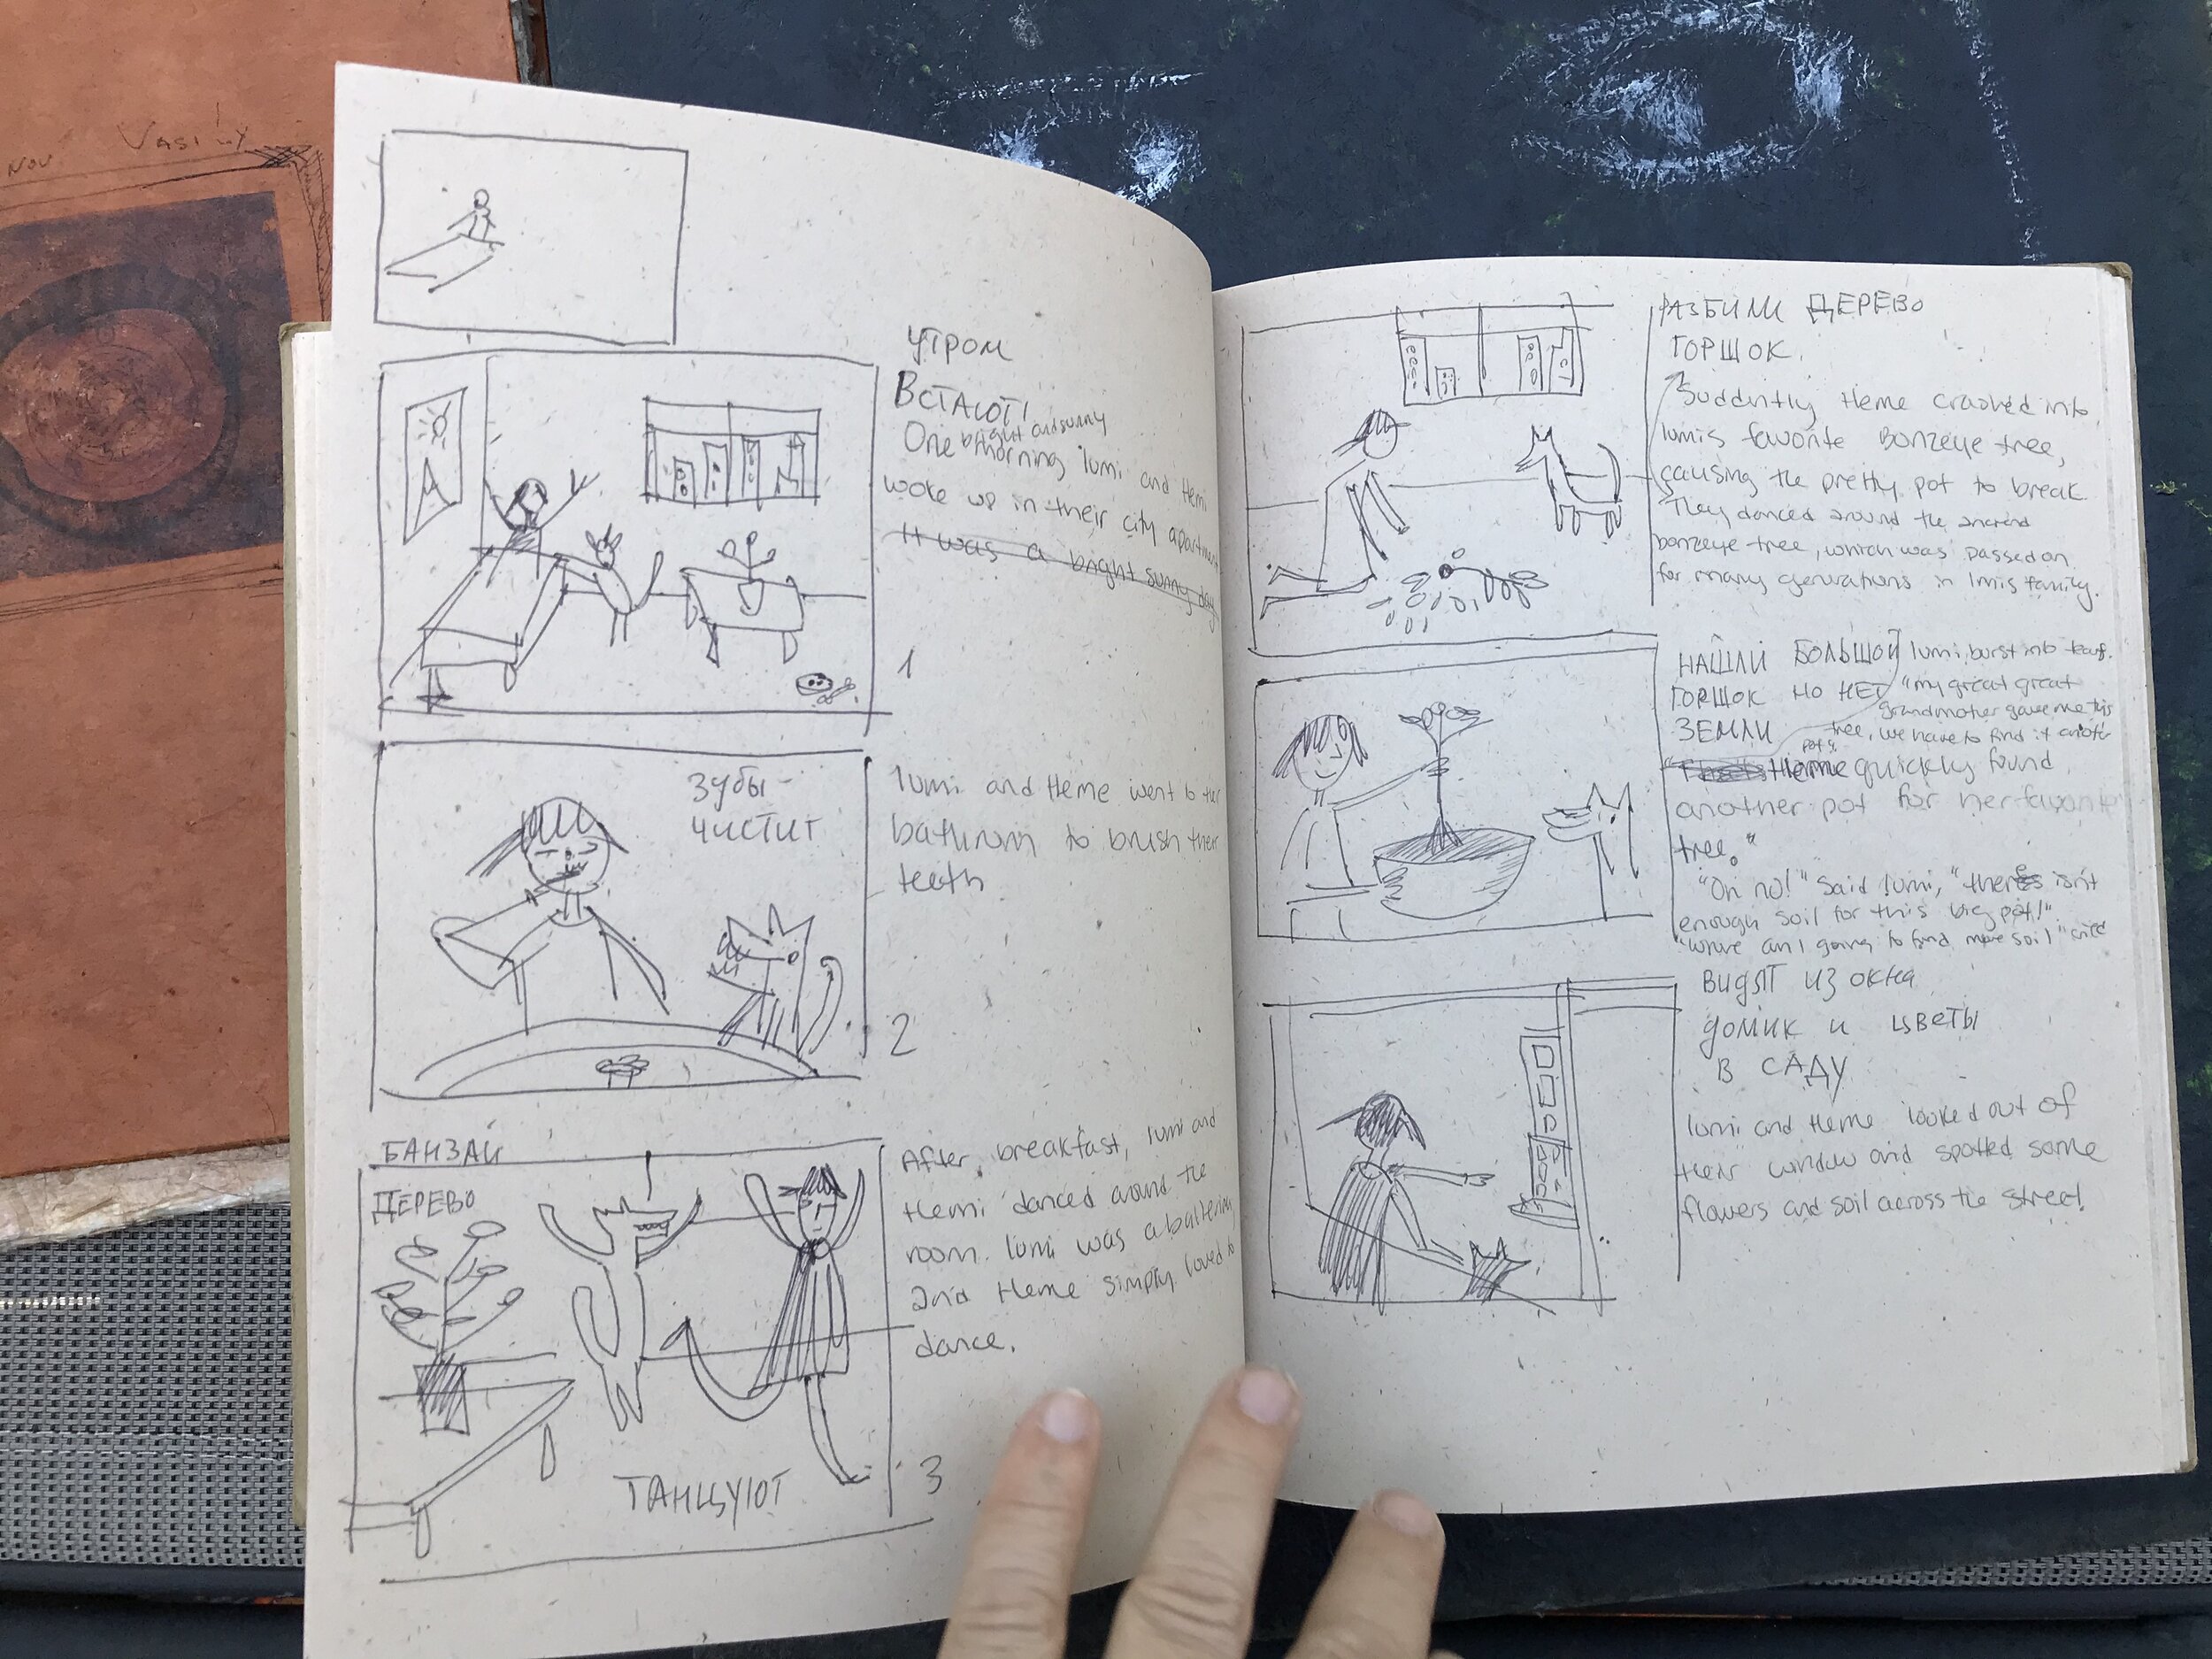 NOV
VASILIY
УТРОМ
ВСТАЮТ!
bright and sunny
One morning lumi and Hemi
woke up in their city apartment
It was a bright sunny day
1
ЗУбЫ-
ЧИСТИТ
lumi and Heme went to their
bathroom to brush their
teeth
2
БАНЗАЙ
ДЕРЕВО
After breakfast, lumi and
Hemi danced around the
room. lumi was a
and Heme simply loved to
dance.
ТАНЦУЮТ
3
РАЗБИЛИ ДЕРЕВО
ГОРШОК.
Suddently Heme crashed into
lumis favorite Bonzeye tree,
causing the pretty pot to break
They danced around the
bonzeye tree, which was passed on
for many generations in lmis family.
НАШЛИ БОЛЬШОЙ
ГОРШОК НО НЕТ
ЗЕМЛИ
lumi burst into tears.
"my great great
grandmother gave me this
tree, we have to find it another
pot".
Heme quickly found
another pot for her favorite
tree."
"Oh no!" said lumi, "there isn't
enough soil for this big pot!"
"Where am I going to find more soil" cried
ВИДЯТ ИЗ ОКНА
ДОМИК И ЦВЕТЫ
В САДУ
lumi and Heme looked out of
their window and spotted some
flowers and soil across the street.